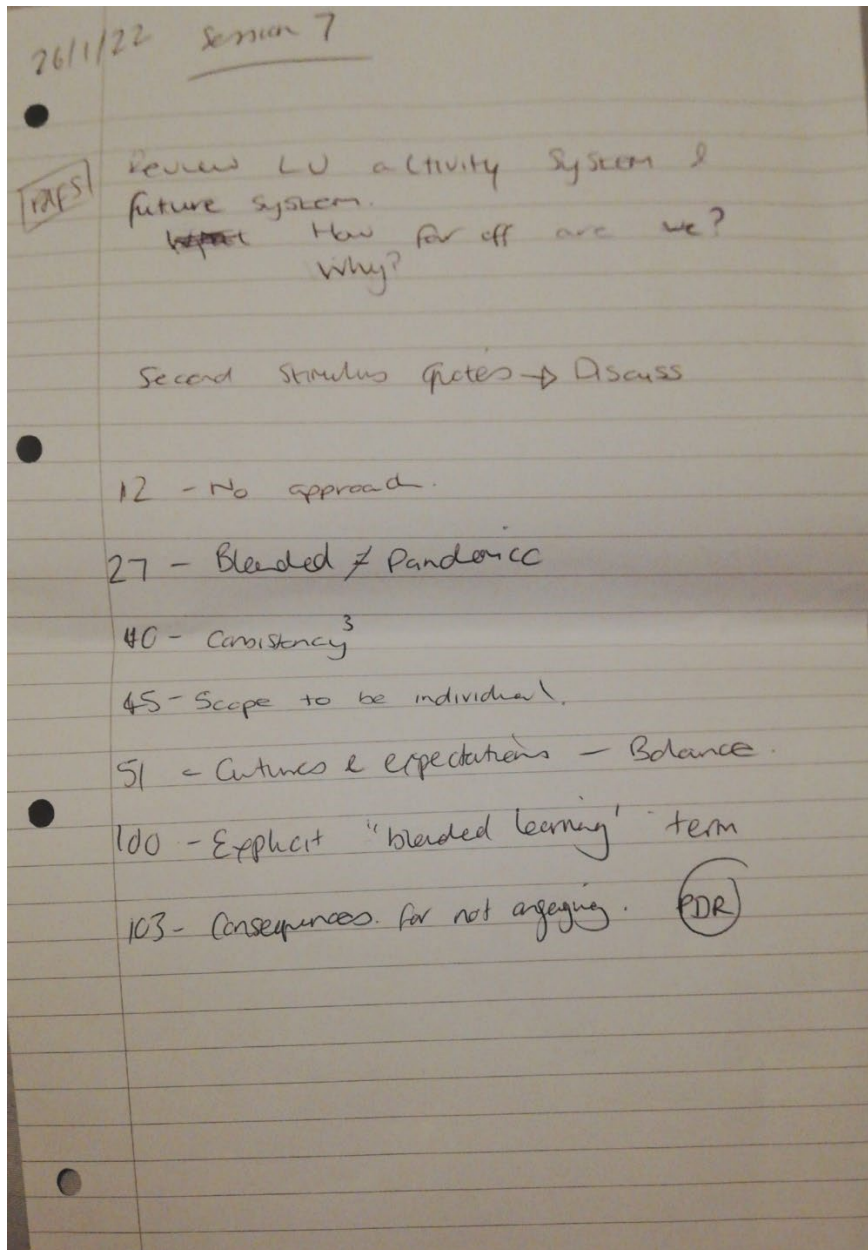 26/1/22 Session 7
Review LU activity system &
future system.
How far off are we?
Why?
Second Stimulus Quotes → Discuss
12 - No approach.
27 - Blended ≠ Pandemicc
40 - Consistency³
45 - Scope to be individual.
51 - Cutures & expectations - Balance.
100 - Explicit "blended learning' term
103 - Consequences. for not engaging. PDR